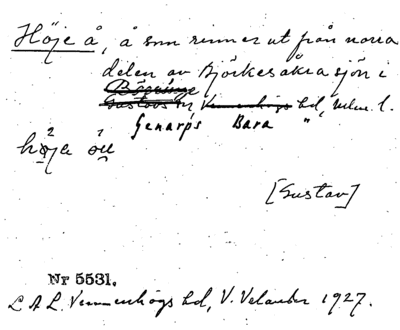 Höje å, å som rinner ut från norra
delen av Björkesåkrasjön i
Börringe
Gustavs sn Vemmenhögs hd, Malm. l.
Genarps Bara "
höja åu
[Gustav]
Nr 5531.
L A L. Vemmenhögs hd, V. Velander 1927.